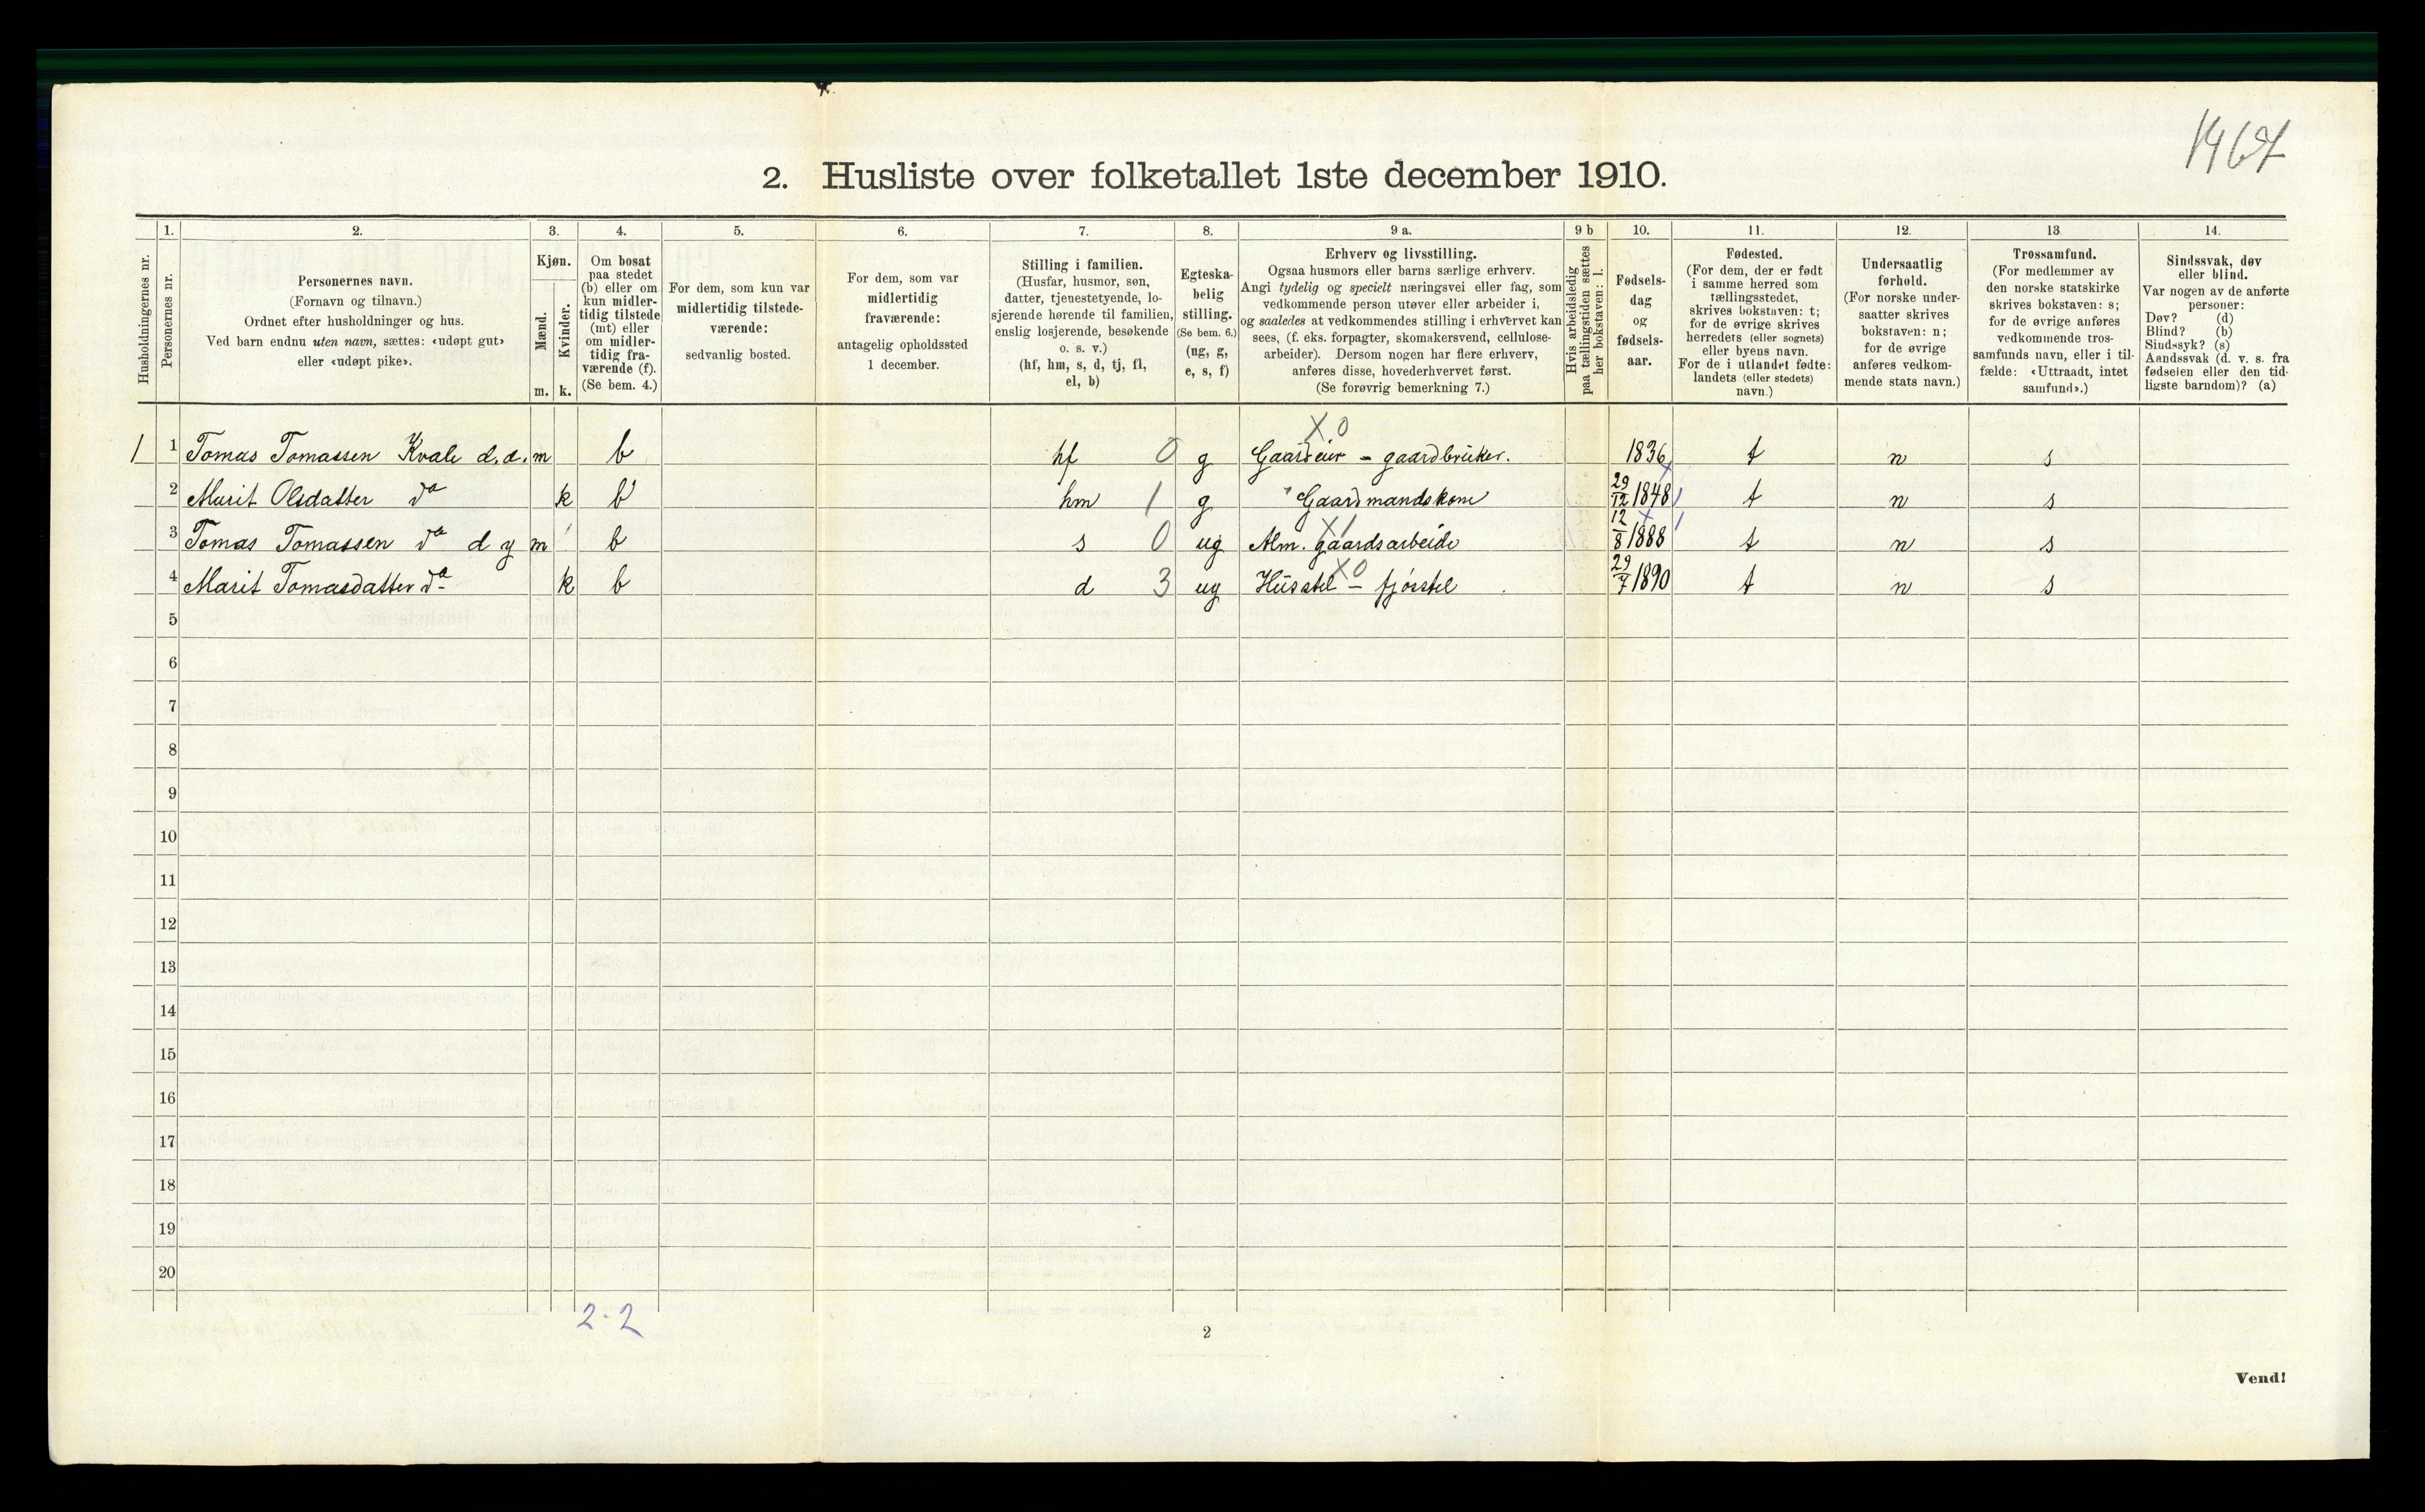 1467
2. Husliste over folketallet 1ste december 1910.
Husholdningernes nr.
1.
Personernes nr.
2.
Personernes navn.
(Fornavn og tilnavn.)
Ordnet efter husholdninger og hus.
Ved barn endnu uten navn, sættes: «udøpt gut»
eller «udøpt pike».
3.
Kjøn.
Mænd.
m.
Kvinder.
k.
4.
Om bosat
paa stedet
(b) eller om
kun midler-
tidig tilstede
(mt) eller
om midler-
tidig fra-
værende (f).
(Se bem. 4.)
5.
For dem, som kun var
midlertidig tilstede-
værende:
sedvanlig bosted.
6.
For dem, som var
midlertidig
fraværende:
antagelig opholdssted
1 december.
7.
Stilling i familien.
(Husfar, husmor, søn,
datter, tjenestetyende, lo-
sjerende hørende til familien,
enslig losjerende, besøkende
o. s. v.)
(hf, hm, s, d, tj, fl,
el, b)
8.
Egteska-
belig
stilling.
(Se bem. 6.)
(ug, g,
e, s, f)
9 a.
Erhverv og livsstilling.
Ogsaa husmors eller barns særlige erhverv.
Angi tydelig og specielt næringsvei eller fag, som
vedkommende person utøver eller arbeider i,
og saaledes at vedkommendes stilling i erhvervet kan
sees, (f. eks. forpagter, skomakersvend, cellulose-
arbeider). Dersom nogen har flere erhverv,
anføres disse, hovederhvervet først.
(Se forøvrig bemerkning 7.)
9 b
Hvis arbeidsledig
paa tællingstiden sættes
her bokstaven: l.
10.
Fødsels-
dag
og
fødsels-
aar.
11.
Fødested.
(For dem, der er født
i samme herred som
tællingsstedet,
skrives bokstaven: t;
for de øvrige skrives
herredets (eller sognets)
eller byens navn.
For de i utlandet fødte:
landets (eller stedets)
navn.)
12.
Undersaatlig
forhold.
(For norske under-
saatter skrives
bokstaven: n;
for de øvrige
anføres vedkom-
mende stats navn.)
13
Trossamfund.
(For medlemmer av
den norske statskirke
skrives bokstaven: s;
for de øvrige anføres
vedkommende tros-
samfunds navn, eller i til-
fælde: «Uttraadt, intet
samfund».)
14.
Sindssvak, døv
eller blind.
Var nogen av de anførte
personer:
Døv? (d)
Blind? (b)
Sindssyk? (s)
Aandssvak (d. v. s. fra
fødselen eller den tid-
ligste barndom)? (a)
X 0
1 1 Tomas Tomassen Kvale d.æ. m b hf 0 g Gaardeier - gaardbruker. 1836 t n s
2 Marit Olsdatter da k b hm 1 g Gaardmandskone 29/12 1848 t n s
X 1
3 Tomas Tomassen da d y m b s 0 ug Alm. gaardsarbeide 12/8 1888 t n s
X 0
4 Marit Tomasdatter da k b d 3 ug Husstel - fjøsstel 29/7 1890 t n s
5
6
7
8
9
10
11
12
13
14
15
16
17
18
19
20
2-2
2
Vend!